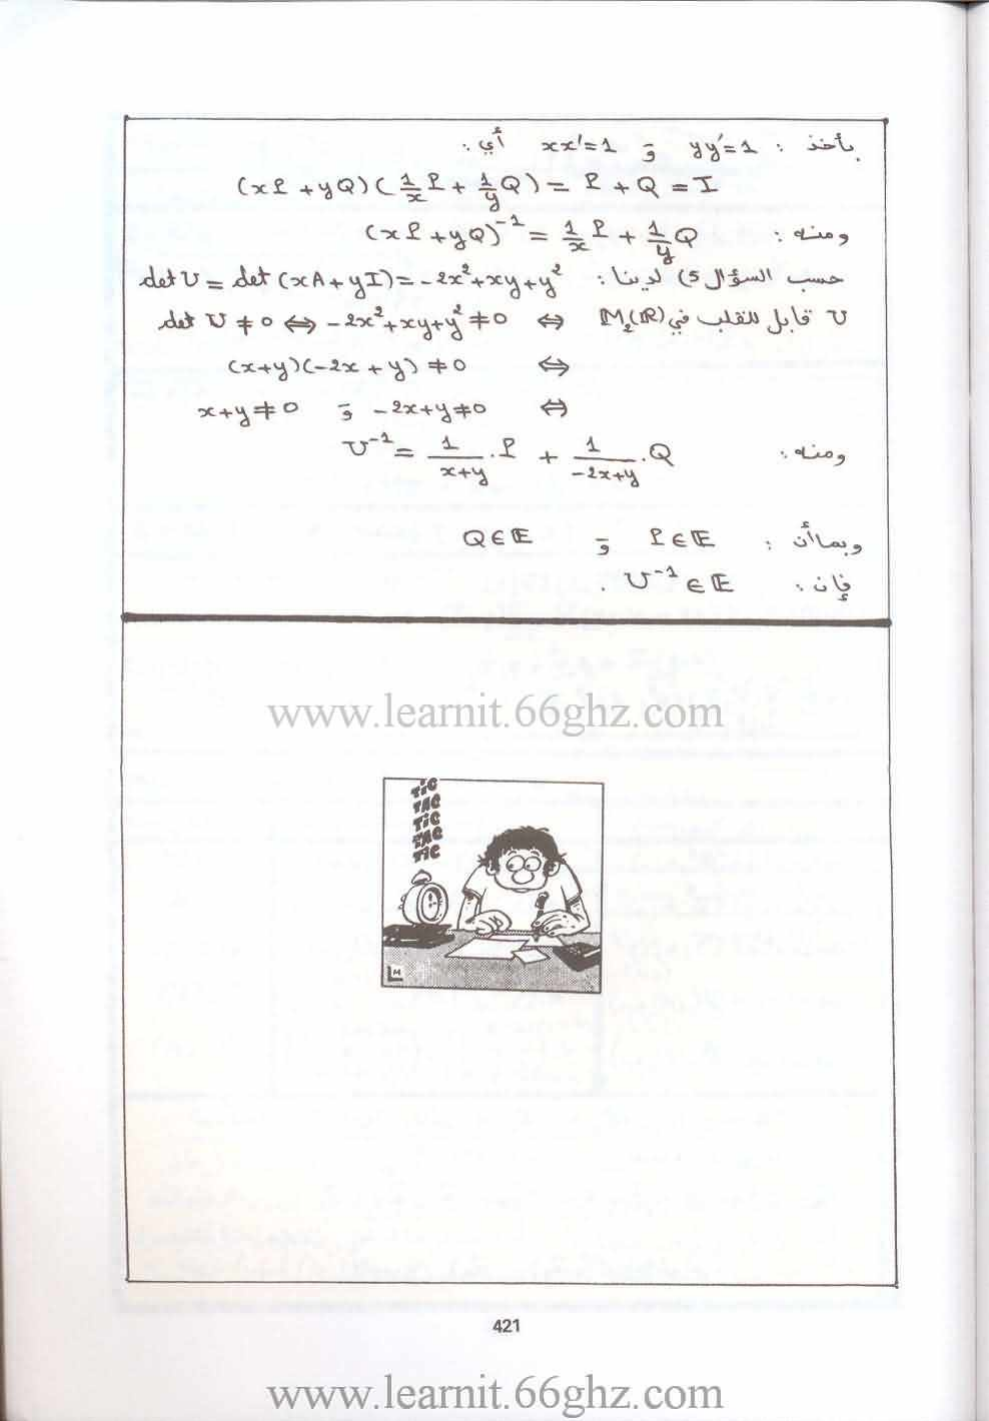 نأخذ : yy'=1 و xx'=1 أي :
(xP + yQ)(1/x P + 1/y Q) = P + Q = I
ومنه : (xP + yQ)⁻¹ = 1/x P + 1/y Q
حسب السؤال 5) لدينا : det U = det (xA + yI) = -2x² + xy + y²
U قابل للقلب في M₂(ℝ) ⇔ det U ≠ 0 ⇔ -2x² + xy + y² ≠ 0
⇔ (x+y)(-2x + y) ≠ 0
⇔ -2x+y ≠ 0 و x+y ≠ 0
ومنه : U⁻¹ = 1/(x+y) . P + 1/(-2x+y) . Q
وبما أن : P ∈ E و Q ∈ E
فإن : U⁻¹ ∈ E .
www.learnit.66ghz.com
TIC
TAC
TIC
TAC
TIC
LM
421
www.learnit.66ghz.com